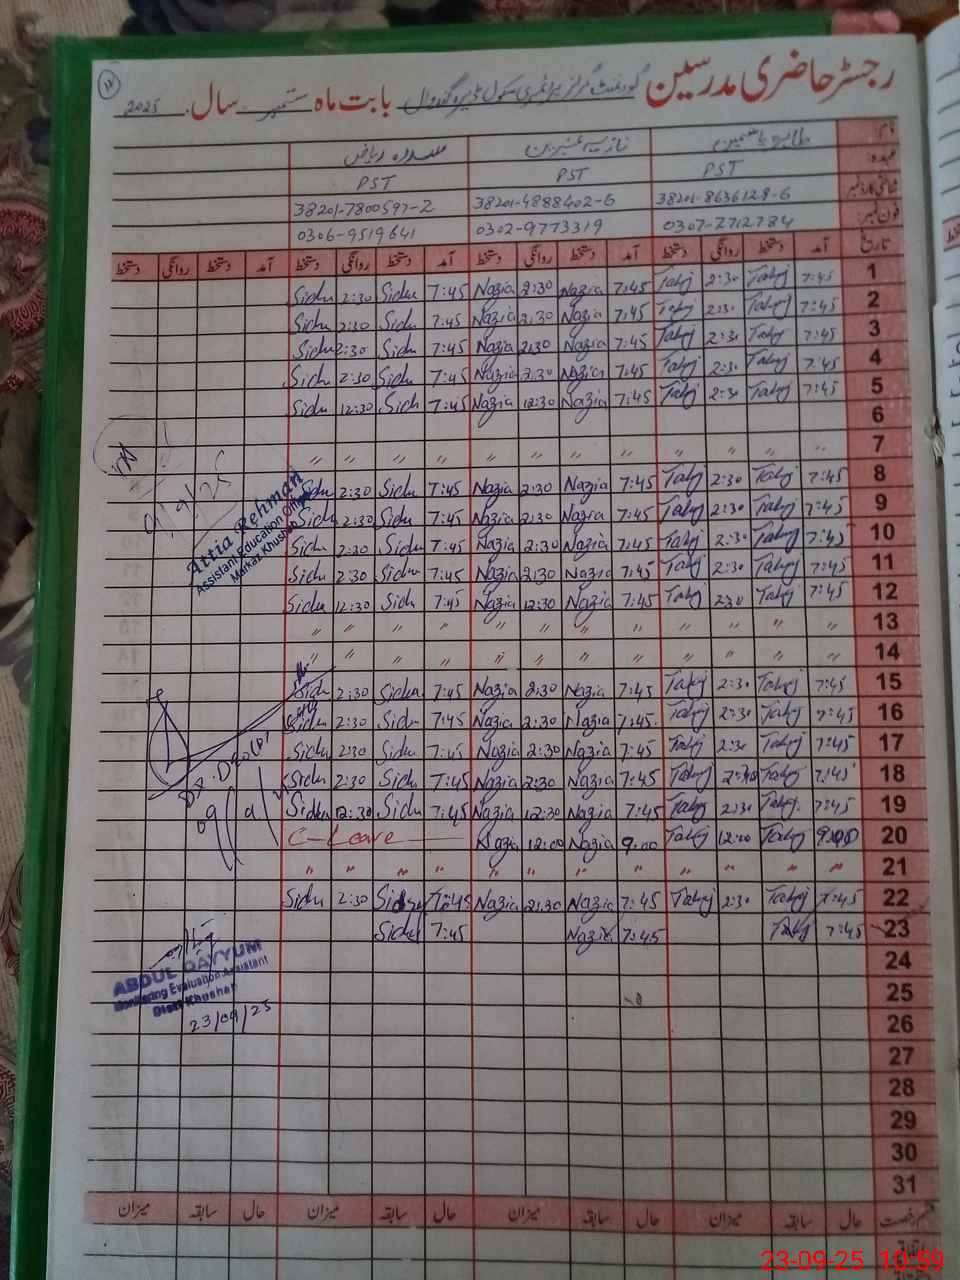 رجسٹر حاضری مدرسین گورنمنٹ گرلز پرائمری سکول بابت ماہ ستمبر سال 2025
نام طاہرہ یاسمین نازیہ عنبرین سدرہ ریاض
عہدہ PST PST PST
شناختی کارڈ نمبر 38201-8636128-6 38201-4888402-6 38201-7800597-2
فون نمبر 0307-7712784 0302-9773319 0306-9519641
تاریخ آمد دستخط روانگی دستخط آمد دستخط روانگی دستخط آمد دستخط روانگی دستخط آمد دستخط روانگی دستخط
1 7:45 2:30 7:45 Nazia 2:30 Nazia 7:45 Sidu 2:30 Sidu
2 7:45 2:30 7:45 Nazia 2:30 Nazia 7:45 Sidu 2:30 Sidu
3 7:45 2:30 7:45 Nazia 2:30 Nazia 7:45 Sidu 2:30 Sidu
4 7:45 2:30 7:45 Nazia 2:30 Nazia 7:45 Sidu 2:30 Sidu
5 7:45 2:30 7:45 Nazia 12:30 Nazia 7:45 Sidu 12:30 Sidu
6
7 〃 〃 〃 〃 〃 〃 〃 〃 〃 〃 〃 〃
8 7:45 2:30 7:45 Nazia 2:30 Nazia 7:45 Sidu 2:30 Sidu
9 7:45 2:30 7:45 Nazia 2:30 Nazia 7:45 Sidu 2:30 Sidu
10 7:45 2:30 7:45 Nazia 2:30 Nazia 7:45 Sidu 2:30 Sidu
11 7:45 2:30 7:45 Nazia 2:30 Nazia 7:45 Sidu 2:30 Sidu
12 7:45 2:30 7:45 Nazia 12:30 Nazia 7:45 Sidu 12:30 Sidu
13 〃 〃 〃 〃 〃 〃 〃 〃 〃 〃 〃 〃
14 〃 〃 〃 〃 〃 〃 〃 〃 〃 〃 〃 〃
15 7:45 2:30 7:45 Nazia 2:30 Nazia 7:45 Sidu 2:30 Sidu
16 7:45 2:30 7:45 Nazia 2:30 Nazia 7:45 Sidu 2:30 Sidu
17 7:45 2:30 7:45 Nazia 2:30 Nazia 7:45 Sidu 2:30 Sidu
18 7:45 2:30 7:45 Nazia 2:30 Nazia 7:45 Sidu 2:30 Sidu
19 7:45 2:30 7:45 Nazia 12:30 Nazia 7:45 Sidu 12:30 Sidu
20 9:00 12:00 9:00 Nazia 12:00 Nazia C-Leave
21 〃 〃 〃 〃 〃 〃 〃 〃 〃 〃 〃 〃
22 7:45 2:30 7:45 Nazia 2:30 Nazia 7:45 Sidu 2:30 Sidu
23 7:45 7:45 Nazia 7:45 Sidu
24
25
26
27
28
29
30
31
قسم رخصت حال سابقہ میزان حال سابقہ میزان حال سابقہ میزان حال سابقہ میزان
اتفاقیہ
Attia Rehman
Assistant Education Officer
Markaz Khushab
ABDUL QAYYUM
Monitoring Evaluation Assistant
Distt Khushab
23/09/25
23-09-25 10:59